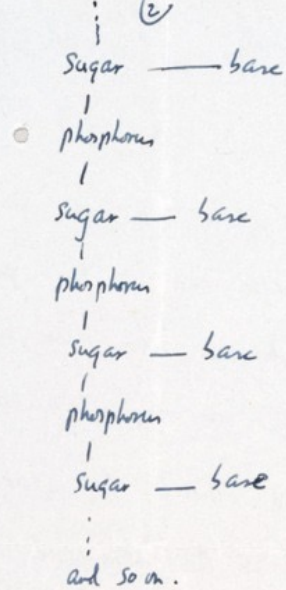 2
Sugar base
phosphorus
sugar base
phosphorus
sugar base
phosphorus
sugar base
and so on.